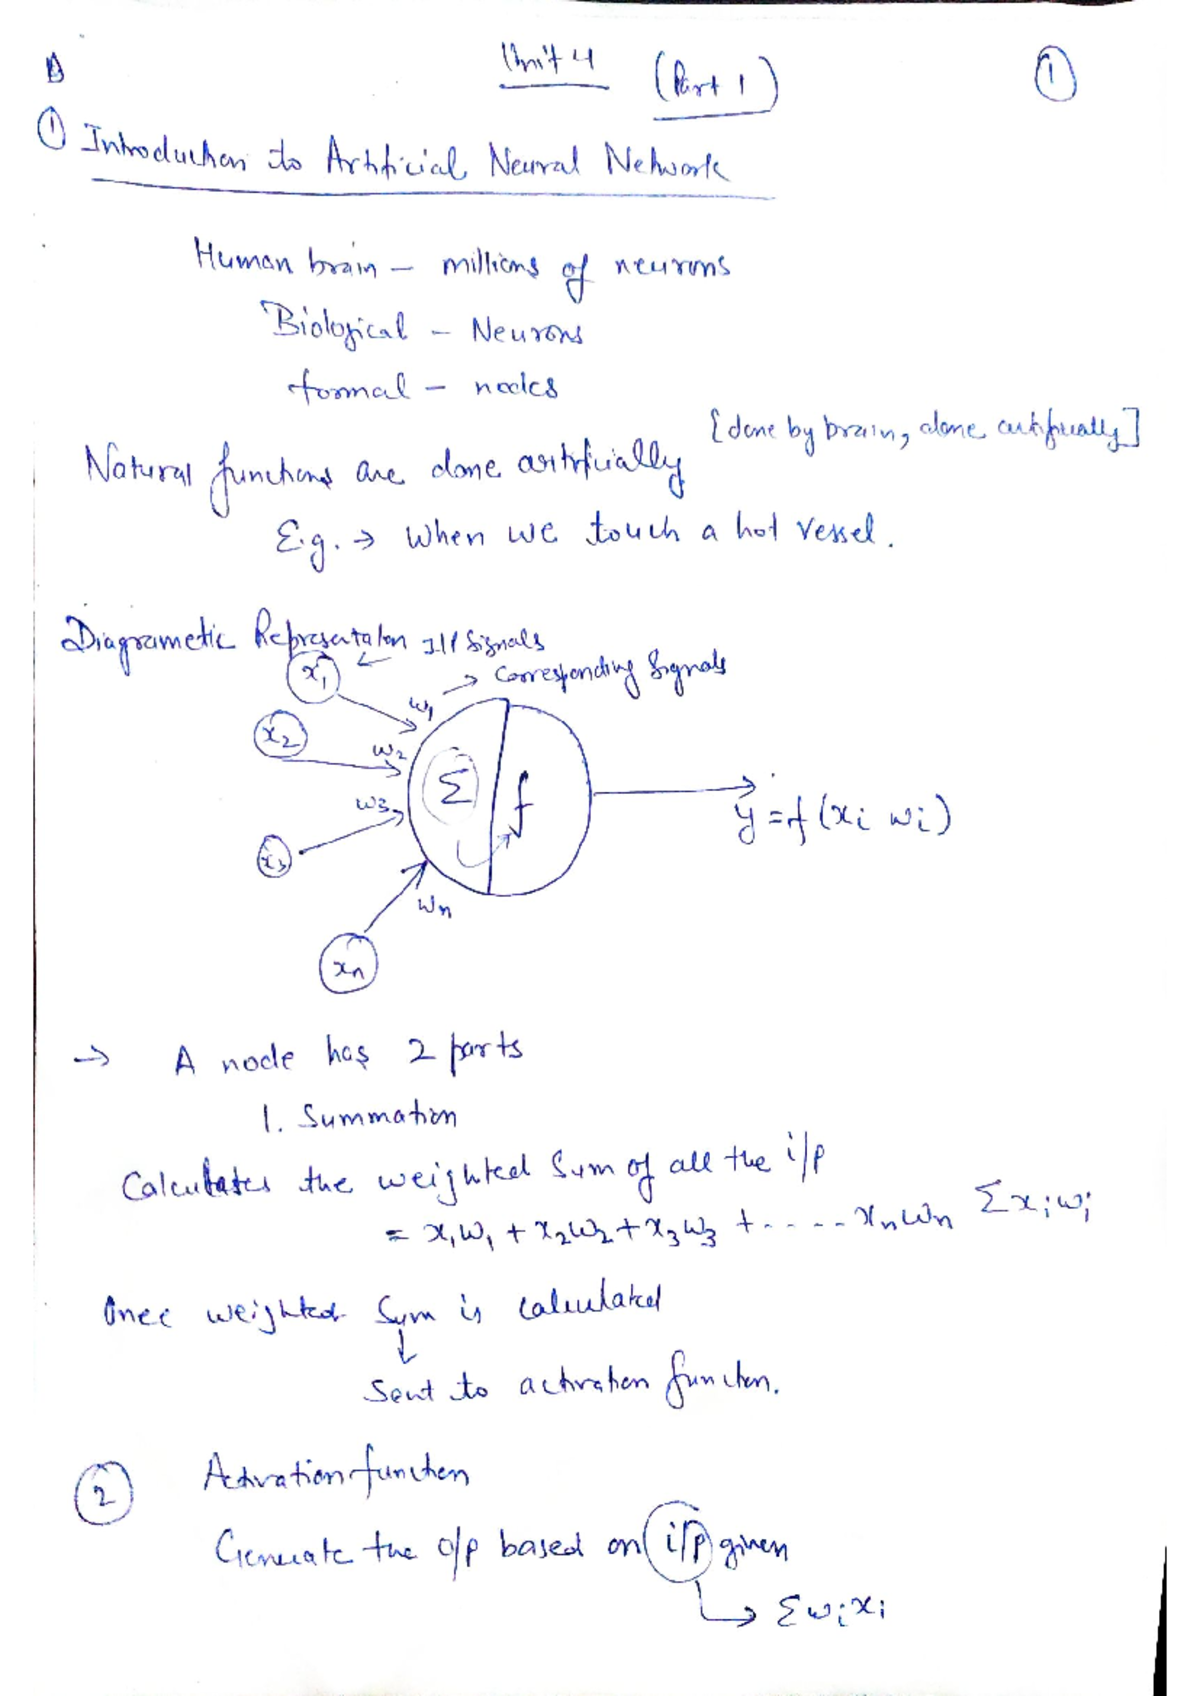 Unit 4 (Part 1) ①
① Introduction to Artificial Neural Network
Human brain – millions of neurons
Biological – Neurons
formal – nodes
[done by brain, done artificially]
Natural functions are done artificially
E.g. → When we touch a hot vessel.
Diagrametic Representation I/P Signals
x1
→ Corresponding Signals
w1
x2
w2
Σ
f
w3
y = f (xi wi)
x3
wn
xn
→ A node has 2 parts
1. Summation
Calculates the weighted sum of all the i/p
= x1w1 + x2w2 + x3w3 + ..... xnwn Σxiwi
Once weighted sum is calculated
↓
Sent to activation function.
② Activation function
Generate the o/p based on i/p given
→ Σwixi